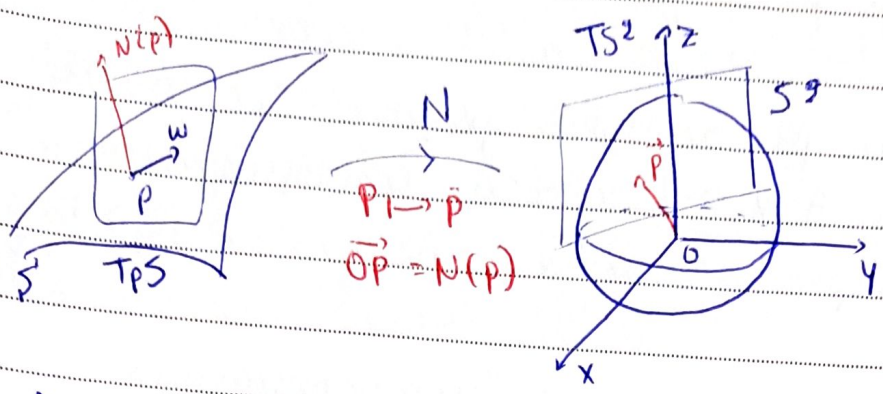 N(p)
w
p
S
TpS
N
P ↦ p̈
OP⃗ = N(p)
TS²
z
S²
p⃗
O
y
x